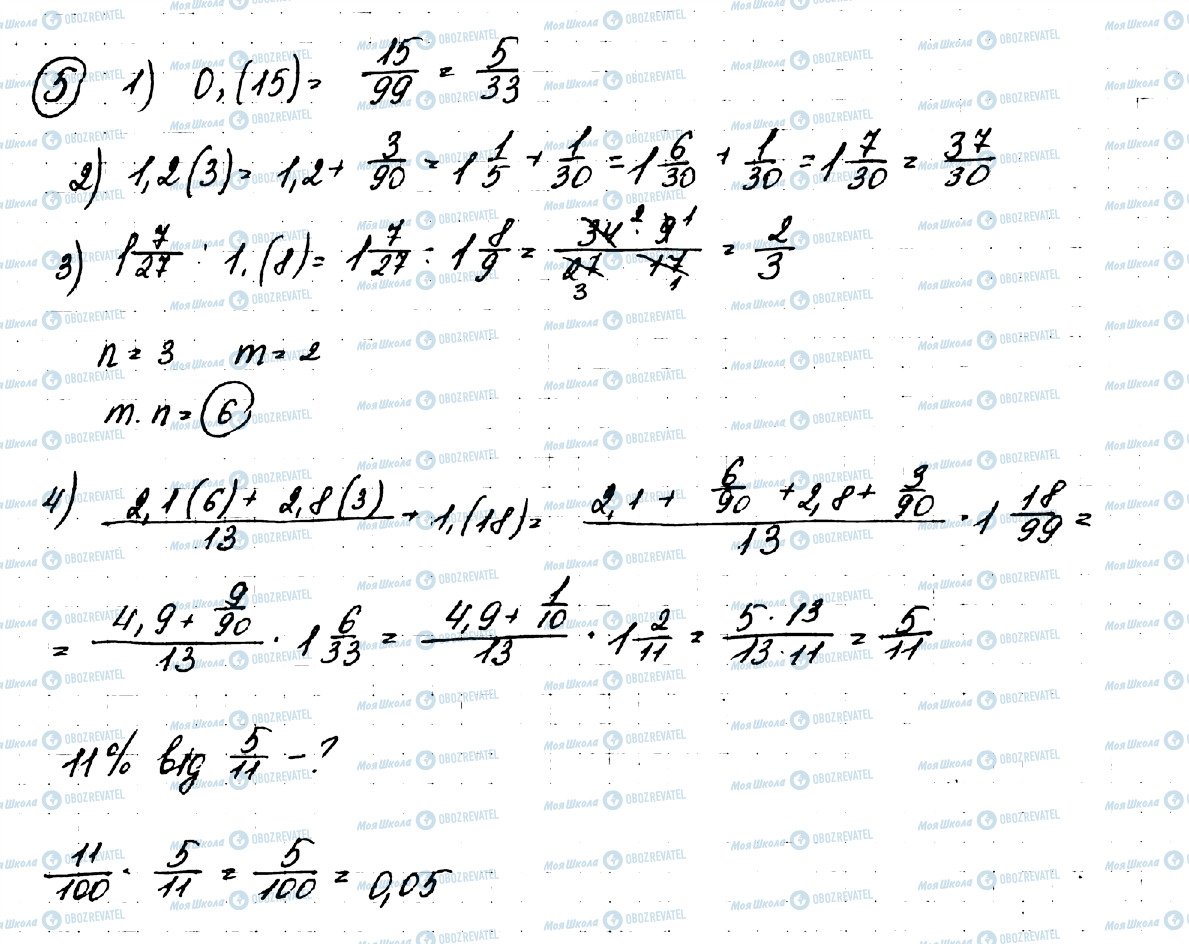 5) 1) 0,(15) = 15/99 = 5/33
2) 1,2(3) = 1,2 + 3/90 = 1 1/5 + 1/30 = 1 6/30 + 1/30 = 1 7/30 = 37/30
3) 1 7/27 : 1,(8) = 1 7/27 : 1 8/9 = 34² · 9¹ / 27₃ · 17₁ = 2/3
n = 3 m = 2
m · n = 6
4) 2,1(6) + 2,8(3) / 13 · 1,(18) = 2,1 + 6/90 + 2,8 + 3/90 / 13 · 1 18/99 =
= 4,9 + 9/90 / 13 · 1 6/33 = 4,9 + 1/10 / 13 · 1 2/11 = 5 · 13 / 13 · 11 = 5/11
11% від 5/11 - ?
11/100 · 5/11 = 5/100 = 0,05
Моя Школа OBOZREVATEL